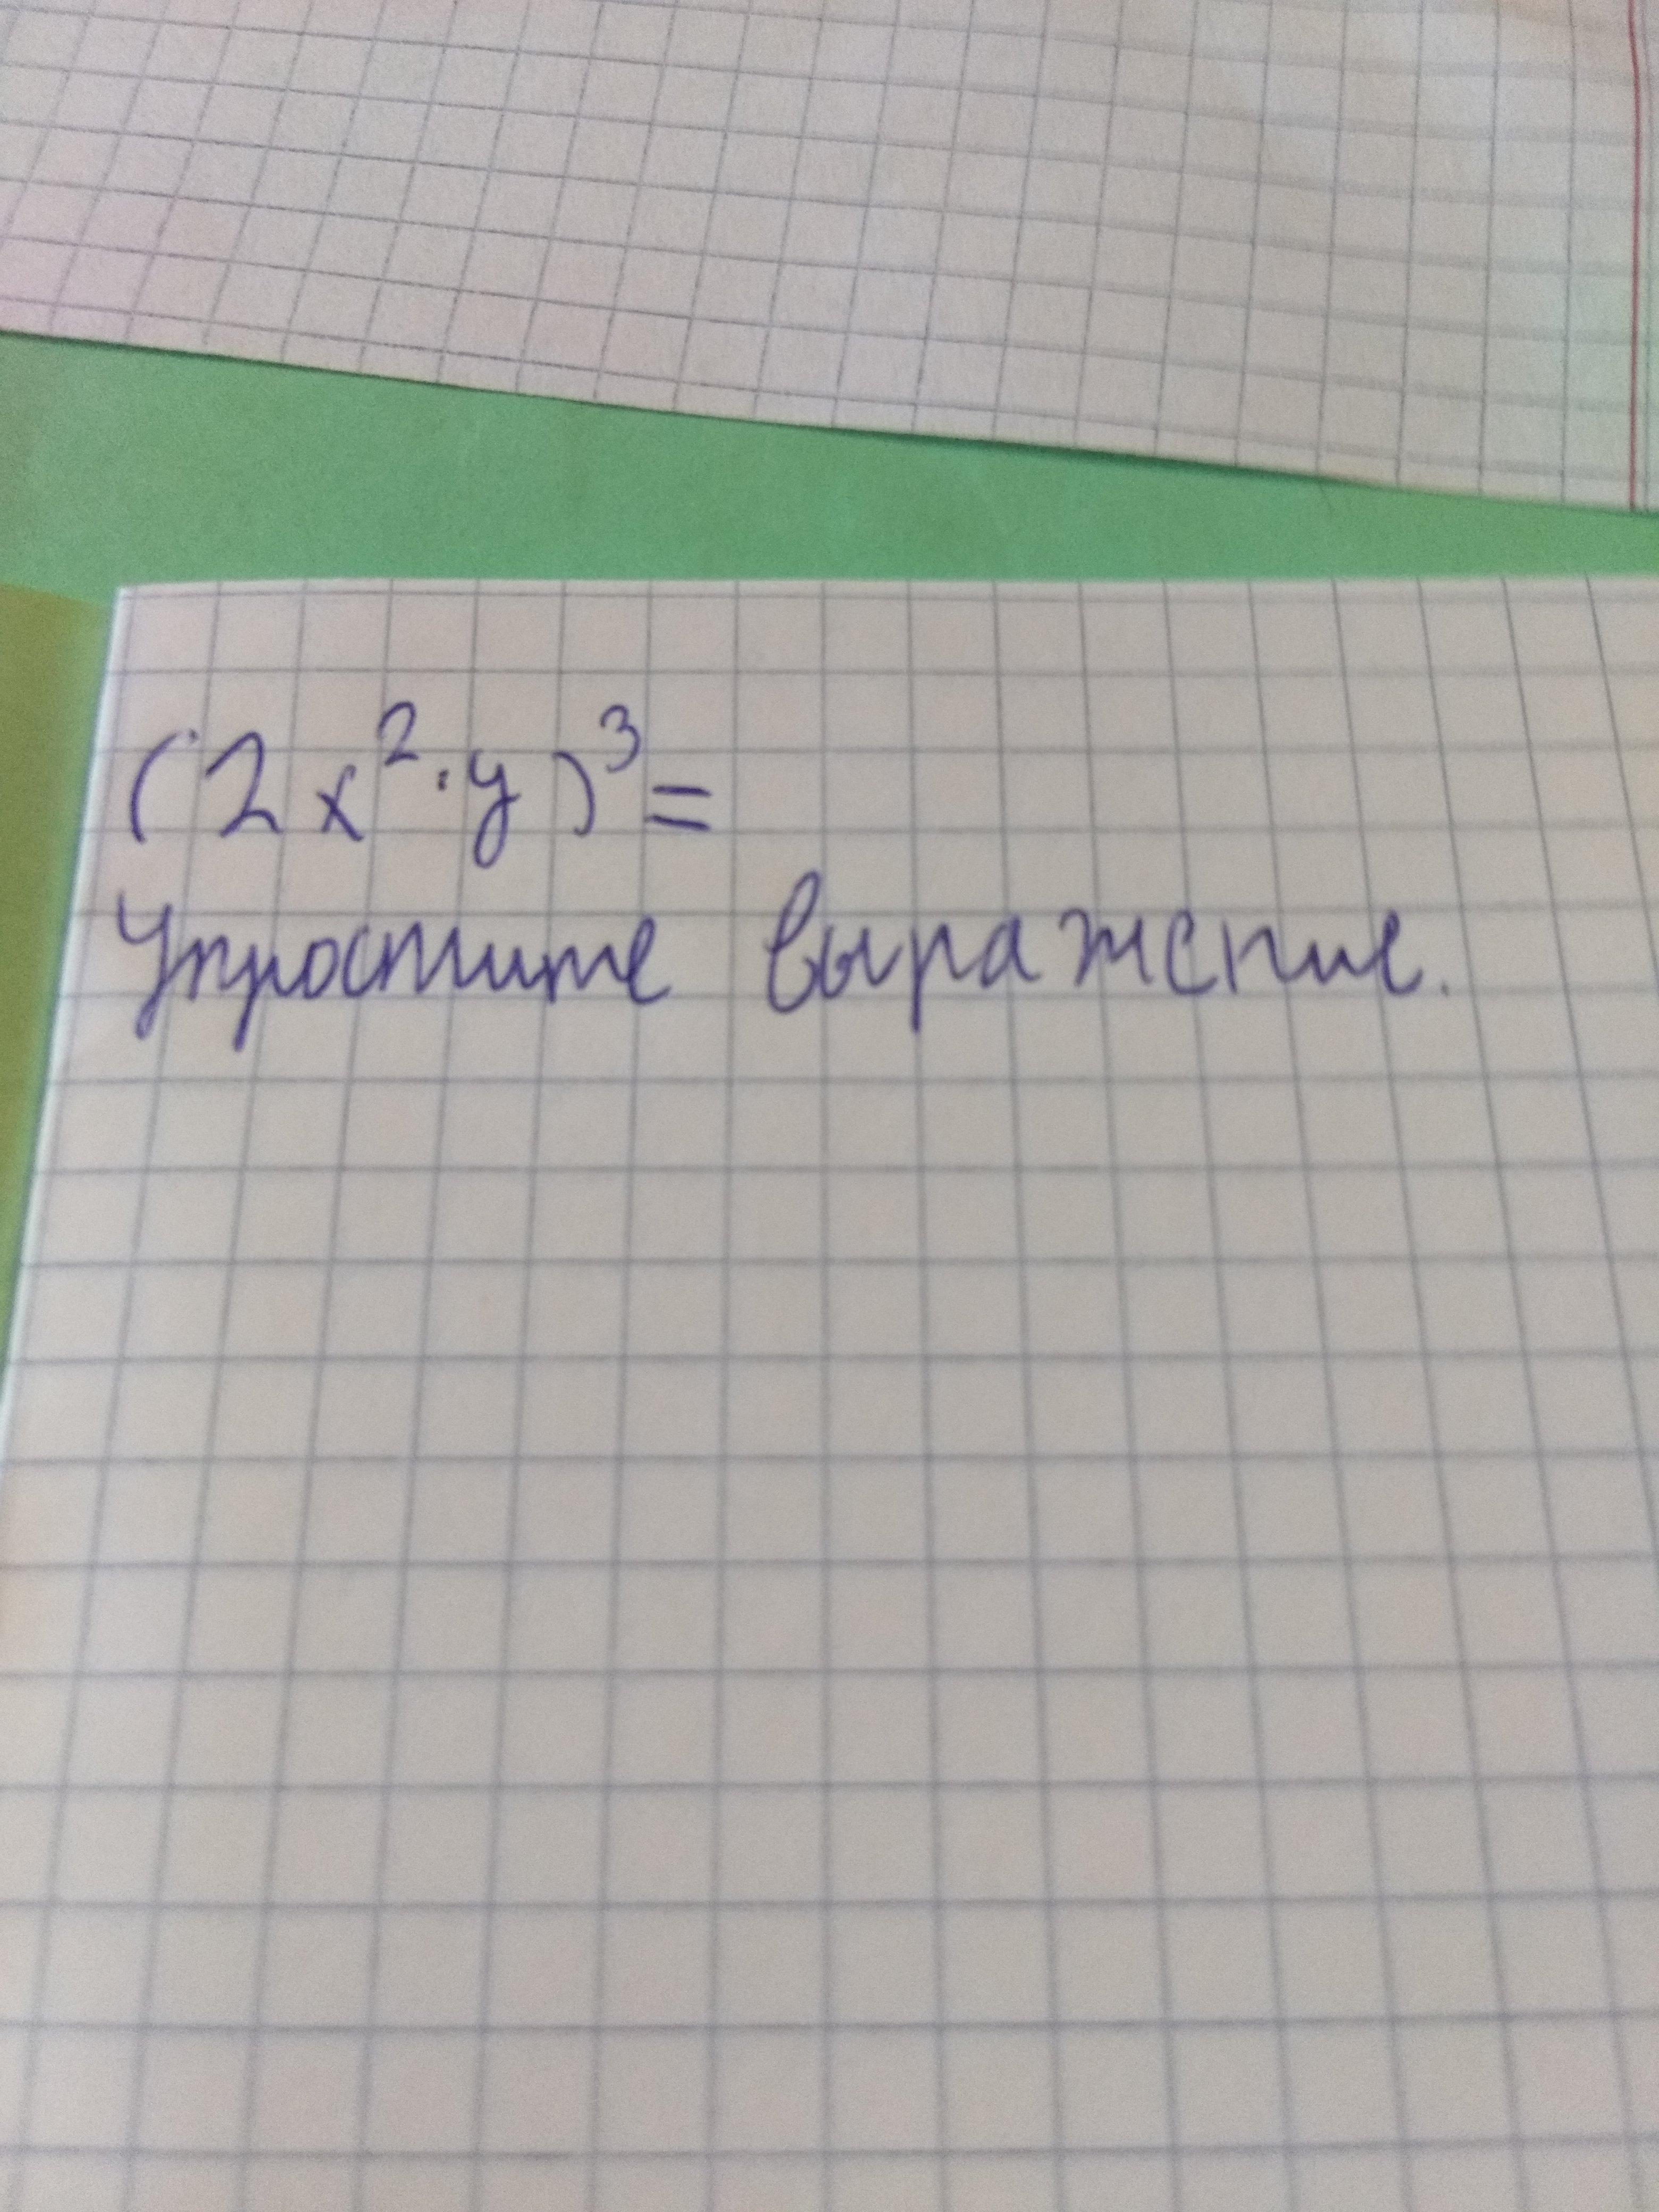 (2x²·y)³=
Упростите выражение.